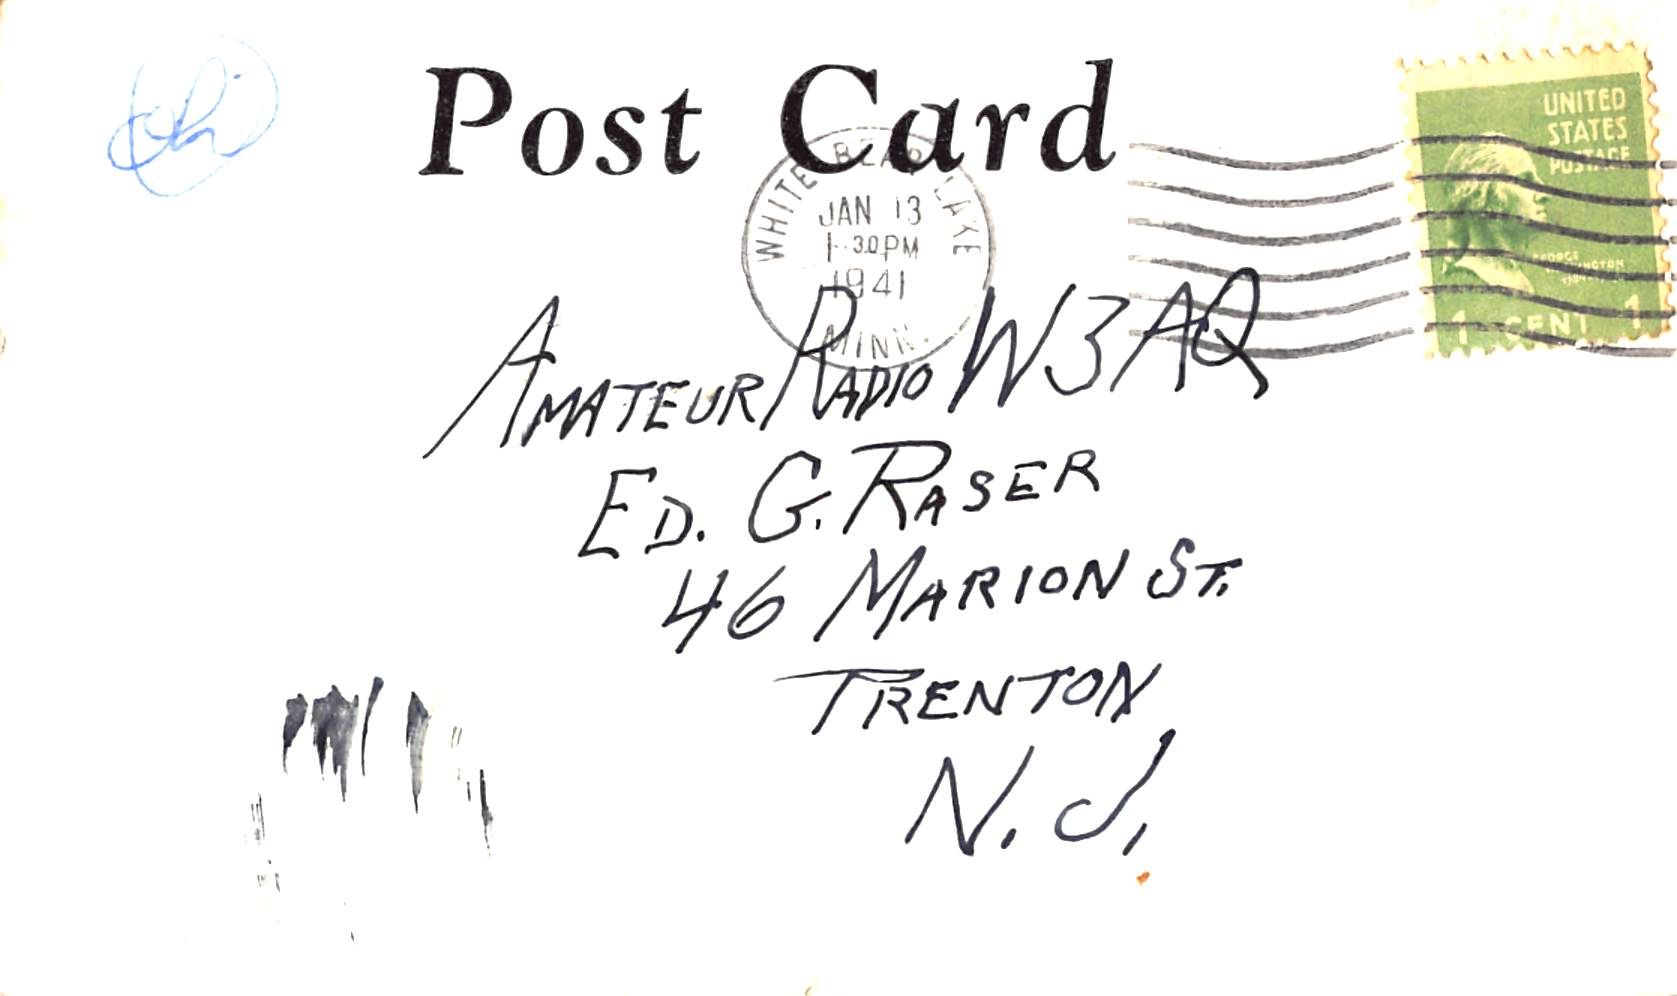 Post Card
UNITED
STATES
POSTAGE
GEORGE
WASHINGTON
1 CENT 1
WHITE BEAR LAKE
JAN 13
1 30 PM
1941
MINN.
AMATEUR RADIO W3AQ
ED. G. RASER
46 MARION ST.
TRENTON
N. J.